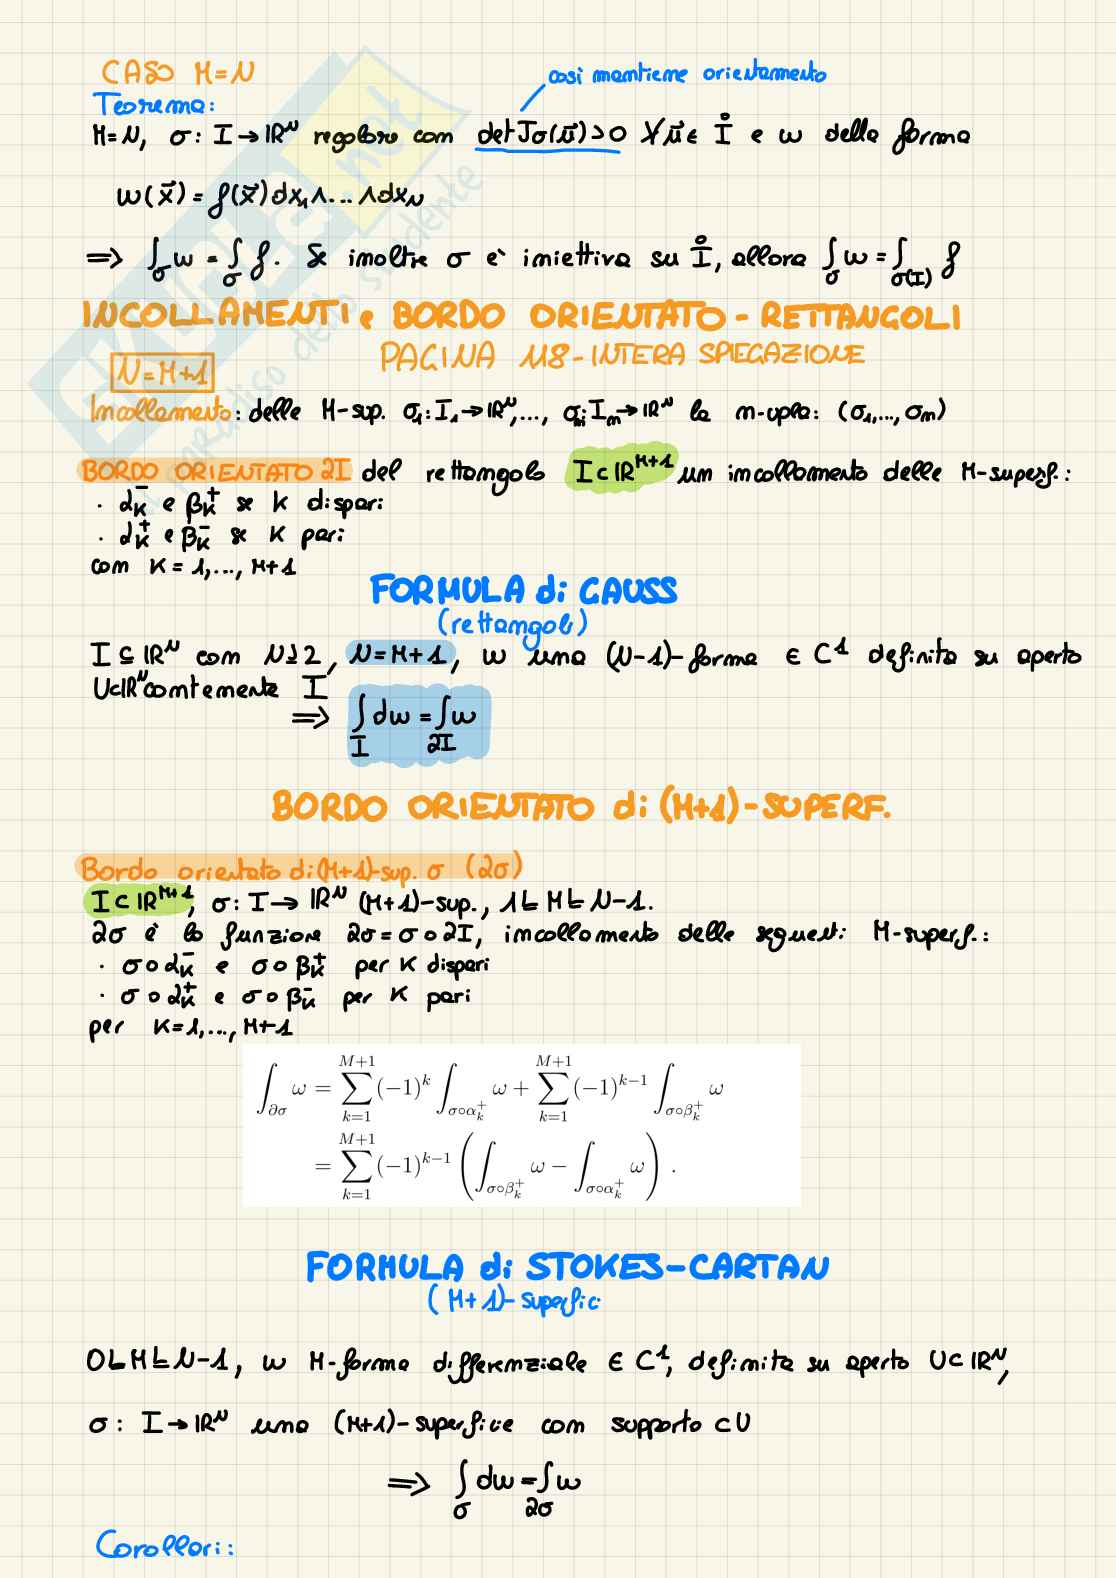 CASO M=N
così mantiene orientamento
Teorema:
M=N, σ: I→ℝᴺ regolare con det Jσ(u⃗)>0 ∀u⃗∈ I̊ e ω della forma
ω(x⃗)=f(x⃗)dx₁∧...∧dx_N
⟹ ∫_σ ω = ∫_σ f. Se inoltre σ è iniettiva su I̊, allora ∫_σ ω = ∫_σ(I) f
INCOLLAMENTI e BORDO ORIENTATO - RETTANGOLI
PAGINA 118 - INTERA SPIEGAZIONE
N=M+1
Incollamento: delle M-sup. σ₁: I₁→ℝᴺ,..., σₘ: Iₘ→ℝᴺ la m-upla: (σ₁,...,σₘ)
BORDO ORIENTATO ∂I del rettangolo I⊂ℝᴹ⁺¹ un incollamento delle M-superf.:
· α_K⁻ e β_K⁺ se K dispari
· α_K⁺ e β_K⁻ se K pari
con K=1,..., M+1
FORMULA di GAUSS
(rettangoli)
I⊆ℝᴺ con N≥2, N=M+1, ω una (N-1)-forma ∈ C¹ definita su aperto
U⊂ℝᴺ contenente I
⟹ ∫_I dω = ∫_∂I ω
BORDO ORIENTATO di (M+1)-SUPERF.
Bordo orientato di (M+1)-sup. σ (∂σ)
I⊂ℝᴹ⁺¹, σ: I→ℝᴺ (M+1)-sup., 1≤M≤N-1.
∂σ è la funzione ∂σ=σ∘∂I, incollamento delle seguenti M-superf.:
· σ∘α_K⁻ e σ∘β_K⁺ per K dispari
· σ∘α_K⁺ e σ∘β_K⁻ per K pari
per K=1,..., M+1
∫_∂σ ω = ∑_{k=1}^{M+1} (−1)^k ∫_{σ∘α_k^+} ω + ∑_{k=1}^{M+1} (−1)^{k−1} ∫_{σ∘β_k^+} ω
= ∑_{k=1}^{M+1} (−1)^{k−1} ( ∫_{σ∘β_k^+} ω − ∫_{σ∘α_k^+} ω ) .
FORMULA di STOKES-CARTAN
(M+1)-superfici
0≤M≤N-1, ω M-forma differenziale ∈ C¹, definita su aperto U⊂ℝᴺ,
σ: I→ℝᴺ una (M+1)-superficie con supporto ⊂U
⟹ ∫_σ dω = ∫_∂σ ω
Corollari: